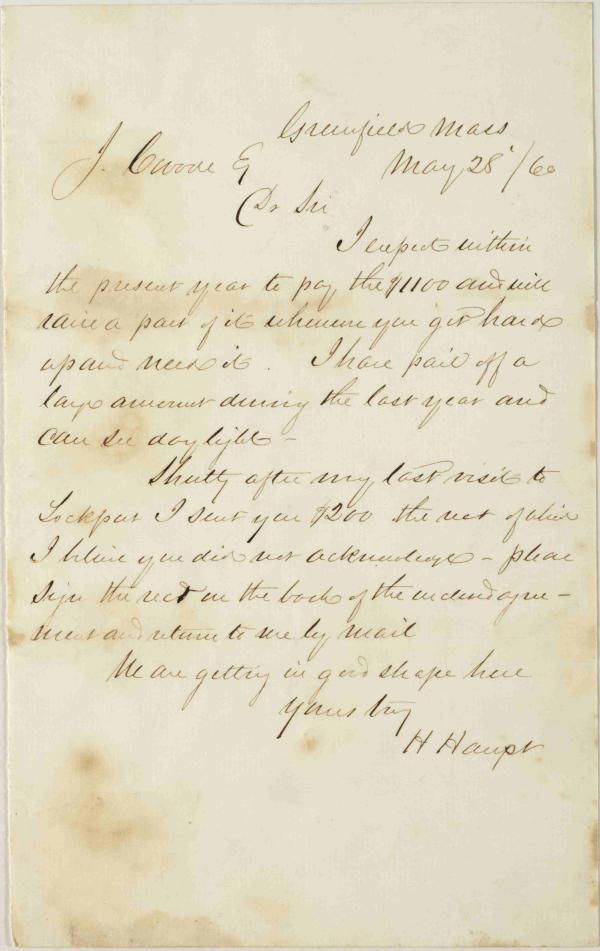 Greenfield Mass
J. Covode Eq May 28 /60
Dr Sir
I expect within
the present year to pay the $1100 and will
raise a part of it whenever you get hard
up and need it. I have paid off a
large amount during the last year and
can see daylight -
Shortly after my last visit to
Lockport I sent you $200 the rect of which
I believe you did not acknowledge - please
sign the rect on the back of the enclosed agree-
ment and return to me by mail
We are getting in good shape here
Yours truly
H Haupt